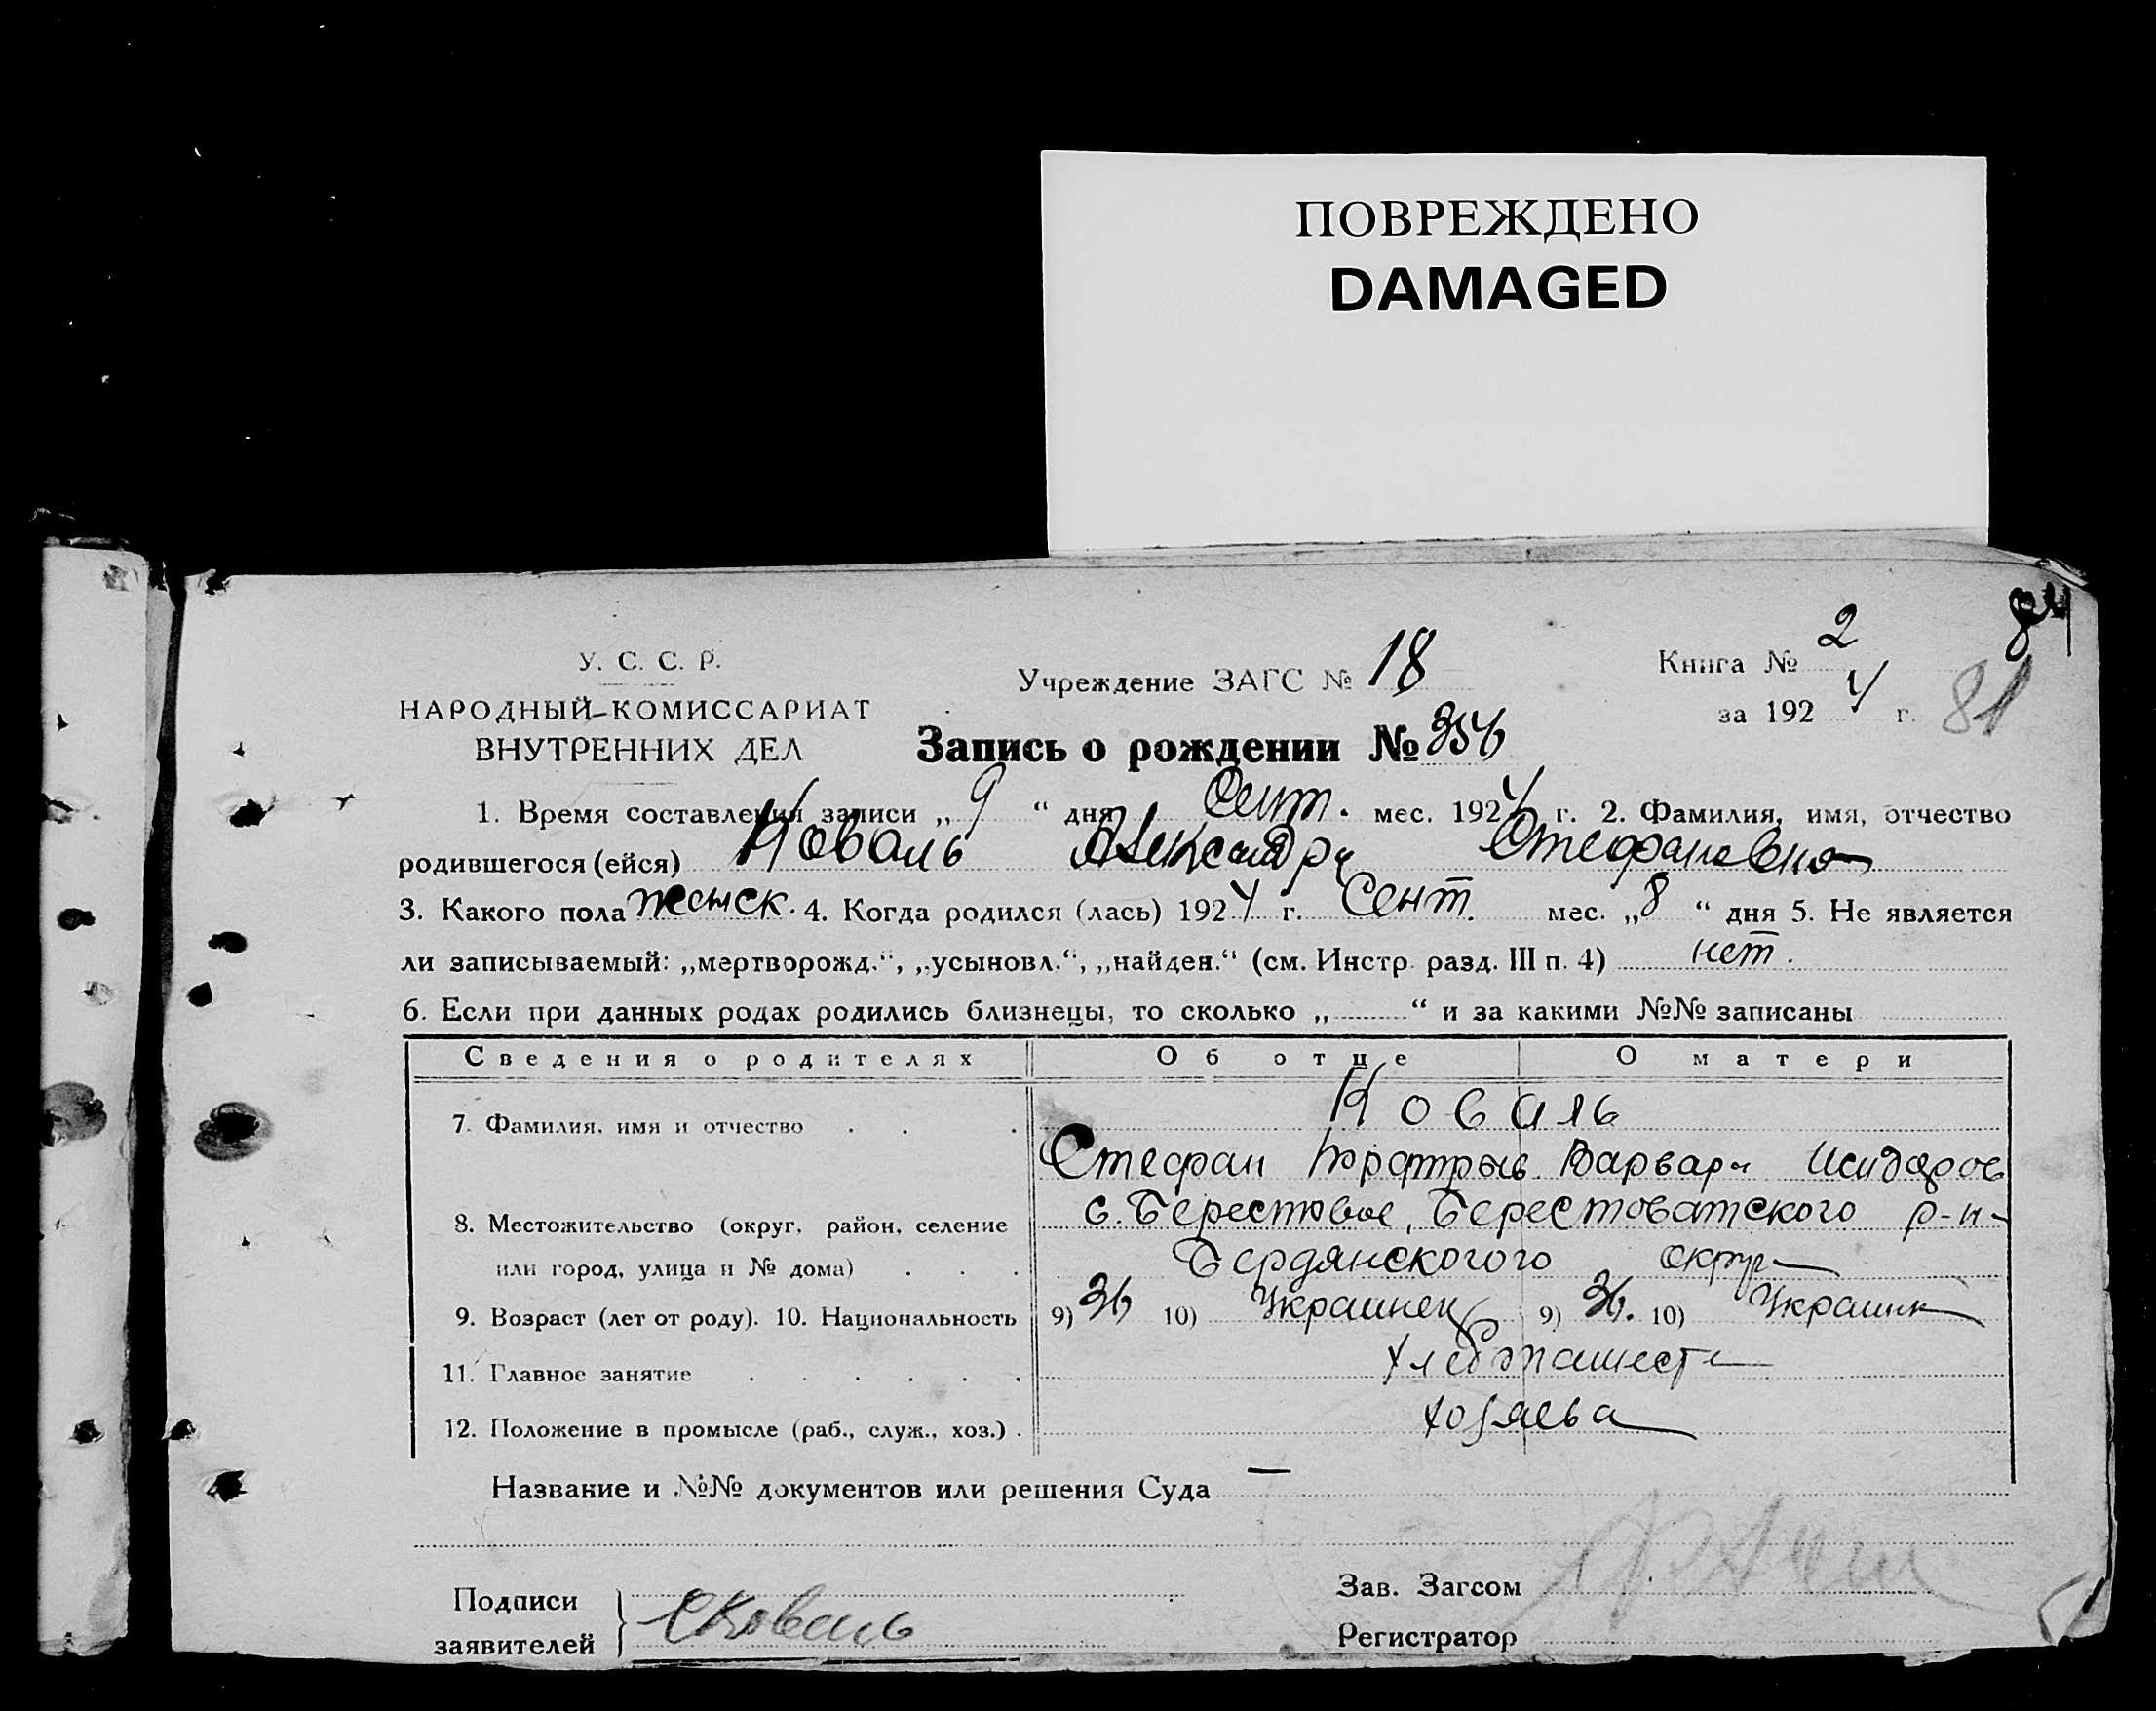 ПОВРЕЖДЕНО
DAMAGED
У. С. С. Р.
НАРОДНЫЙ-КОМИССАРИАТ
ВНУТРЕННИХ ДЕЛ
Учреждение ЗАГС № 18
Книга № 2
за 1924 г.
81
Запись о рождении № 356
1. Время составления записи „9“ дня Сент. мес. 1924 г. 2. Фамилия, имя, отчество
родившегося (ейся) Коваль Александра Стефановна
3. Какого пола женск. 4. Когда родился (лась) 1924 г. Сент. мес. „8“ дня 5. Не является
ли записываемый: „мертворожд.“, „усыновл.“, „найден.“ (см. Инстр. разд. III п. 4) нет.
6. Если при данных родах родились близнецы, то сколько „ “ и за какими №№ записаны
Сведения о родителях Об отце О матери
7. Фамилия, имя и отчество Коваль
Стефан Варвара Исидоров
8. Местожительство (округ, район, селение с. Берестовое, Берестоватского р-н
или город, улица и № дома) Бердянскогого округ
9. Возраст (лет от роду). 10. Национальность 9) 36 10) Украинец 9) 36. 10) Украинк
11. Главное занятие хлебопашест
12. Положение в промысле (раб., служ., хоз.) хозяева
Название и №№ документов или решения Суда —
Подписи
заявителей СКоваль
Зав. Загсом
Регистратор